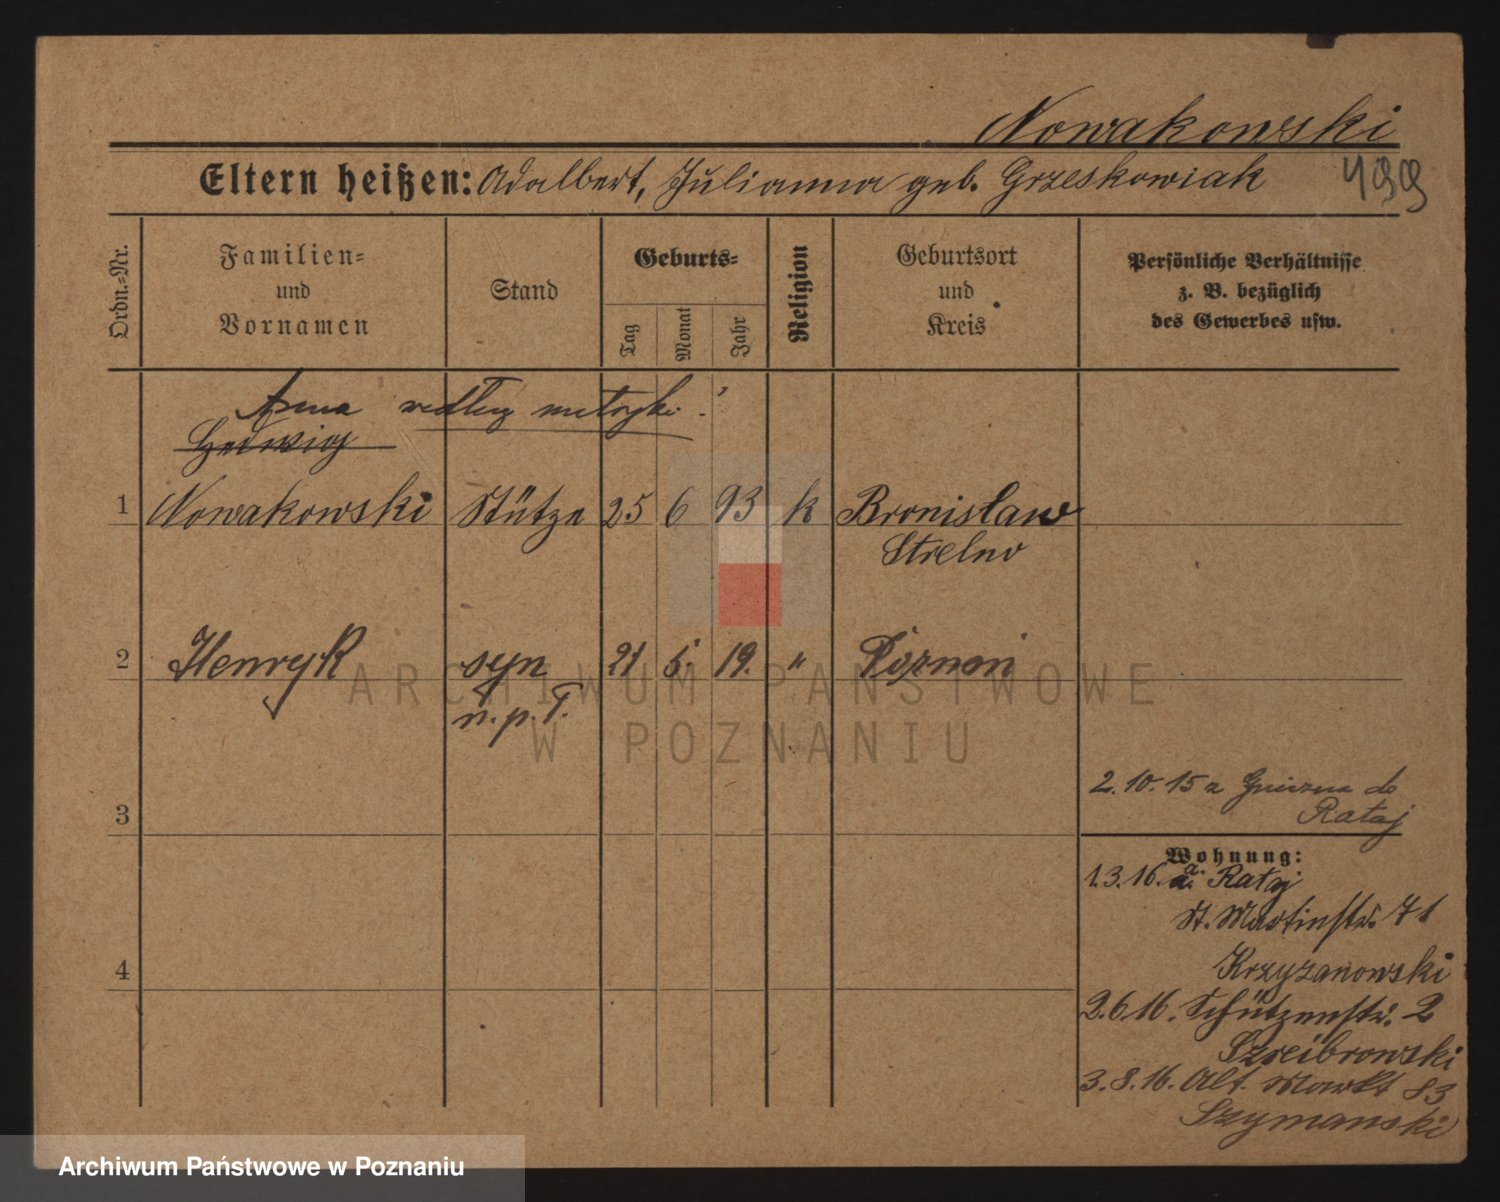 Nowakowski
Eltern heißen: Adalbert, Julianna geb. Grzeskowiak
Ordn.-Nr.
Familien-
und
Vornamen
Stand
Geburts-
Tag
Monat
Jahr
Religion
Geburtsort
und
Kreis
Persönliche Verhältnisse
z. B. bezüglich
des Gewerbes usw.
Anna według metryki.
Hedwig
1 Nowakowski Stütze 25 6 93 k Bronislaw
Strelno
2 Henryk syn 21 5. 19. " Poznań
n.p.T.
3
4
2.10.15 a Gniezna do
Rataj
Wohnung:
1.3.16. a. Rataj
St. Martinstr. 71
Krzyzanowski
2.6.16. Schützenstr. 2
Szreibrowski
3.8.16. Alt. Markt 83
Szymanski
ARCHIWUM PAŃSTWOWE
W POZNANIU
Archiwum Państwowe w Poznaniu